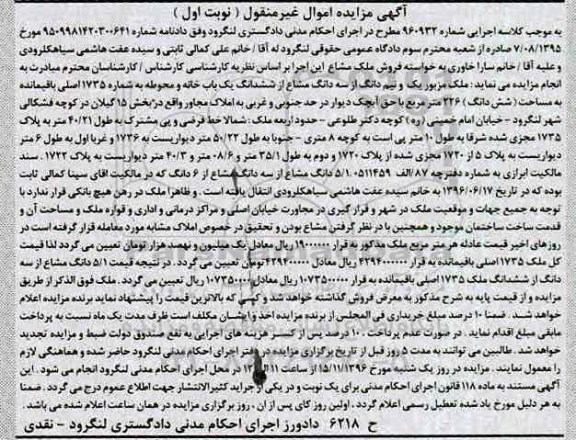 آگهی مزایده اموال غیرمنقول ( نوبت اول )
به موجب کلاسه اجرایی شماره ۹۶۰۹۳۲ مطرح در اجرای احکام مدنی دادگستری لنگرود وفق دادنامه شماره ۹۵۰۹۹۸۱۴۲۰۳۰۰۶۴۱ مورخ
۷/۰۸/۱۳۹۵ صادره از شعبه محترم سوم دادگاه عمومی حقوقی لنگرود له آقا / خانم علی کمالی ثابتی و سیده عفت هاشمی سیاهکلرودی
و علیه آقا / خانم سارا خاوری به خواسته فروش ملک مشاع این اجرا بر اساس نظریه کارشناسی کارشناس / کارشناسان محترم مبادرت به
انجام مزایده می نماید : ملک مزبور یک و نیم دانگ از سه دانگ مشاع از ششدانگ یک باب خانه و محوطه به شماره ۱۷۳۵ اصلی باقیمانده
به مساحت ( شش دانگ ) ۲۲۶ متر مربع با حق آبچک دیوار در حد جنوبی و غربی به املاک مجاور واقع در بخش ۱۵ گیلان در کوچه فشکالی
شهر لنگرود - خیابان امام خمینی (ره) کوچه دکتر طلوعی - حدود اربعه ملک : شمالا خط فرضی و پی مشترک به طول ۴۰/۲۱ متر به پلاک
۱۷۳۵ مجزی شده شرقا به طول ۱۰ متر پی است به کوچه ۸ متری - جنوبا به طول ۵۰/۲۲ متر دیواریست به ۱۷۳۶ و غربا اول به طول ۶ متر
دیواریست به پلاک ۵ از ۱۷۲۰ مجزی شده از پلاک ۱۷۲۰ و دوم به طول ۳۵/۱ متر و ۰۸/۶ متر و ۴۰/۳ متر دیواریست به پلاک ۱۷۲۲ . سند
مالکیت ابرازی به شماره دفترچه ۸۷/الف ۰۵۱۱۴۵۹ ۵/۱۰ دانگ مشاع از سه دانگ مشاع از ۶ دانگ که در مالکیت اقای سینا کمالی ثابت
بوده که در تاریخ ۱۳۹۶/۰۶/۱۷ به خانم سیده عفت هاشمی سیاهکلرودی انتقال یافته است . و ظاهرا ملک در رهن هیچ بانکی قرار ندارد با
توجه به جمیع جهات و موقعیت ملک در شهر و قرار گیری در مجاورت خیابان اصلی و مراکز درمانی و اداری و قواره ملک و مساحت آن و
قدمت ساخت ساختمان موجود و همچنین با در نظر گرفتن مشاع بودن و تحقیق در خصوص املاک مشابه مورد معامله قرار گرفته است در
روزهای اخیر قیمت عادله هر متر مربع ملک مذکور به قرار ۱۹۰۰۰۰۰۰ ریال معادل یک میلیون و نهصد هزار تومان تعیین می گردد لذا قیمت
کل ملک ۱۷۳۵ اصلی باقیمانده به قرار ۴۲۹۴۰۰۰۰۰۰ ریال معادل ۴۲۹۴۰۰۰۰۰ تومان تعیین می گردد . در نتیجه قیمت ۵/۱ دانگ مشاع از سه
دانگ از ششدانگ ملک ۱۷۳۵ اصلی باقیمانده به قرار ۱۰۷۳۵۰۰۰۰۰ ریال معادل ۱۰۷۳۵۰۰۰۰ ریال تعیین می گردد . ملک فوق الذکر از طریق
مزایده و از قیمت پایه به شرح مذکور به معرض فروش گذاشته خواهد شد و کسی که بالاترین قیمت را پیشنهاد نماید برنده مزایده اعلام
خواهد شد. ضمنا ۱۰ درصد مبلغ خریداری فی المجلس از برنده مزایده اخذ و ایشان مکلف است ظرف مدت یک ماه نسبت به پرداخت
مابقی مبلغ اقدام نماید . در صورت عدم پرداخت ۱۰ درصد پس از کسر هزینه های اجرایی به نفع صندوق دولت ضبط و مزایده تجدید
خواهد شد . طالبین می توانند به مدت ۵ روز قبل از تاریخ برگزاری مزایده در دفتر اجرای احکام مدنی لنگرود حاضر شده و هماهنگی لازم
را معمول نمایند . مزایده در روز یک شنبه مورخ ۱۵/۱۱/۱۳۹۶ از ساعت ۱۱ الی ۱۲ در محل اجرای احکام مدنی لنگرود انجام می شود . این
آگهی مستند به ماده ۱۱۸ قانون اجرای احکام مدنی برای یک نوبت و در یکی از جراید کثیرالانتشار جهت اطلاع عموم درج می گردد . ضمنا
به هر دلیل مورخ یاد شده تعطیل رسمی اعلام گردد ، اولین روز کای پس از ان ، روز برگزاری مزایده در همان ساعت اعلام شده می باشد .
ح ۶۲۱۸ دادورز اجرای احکام مدنی دادگستری لنگرود - نقدی